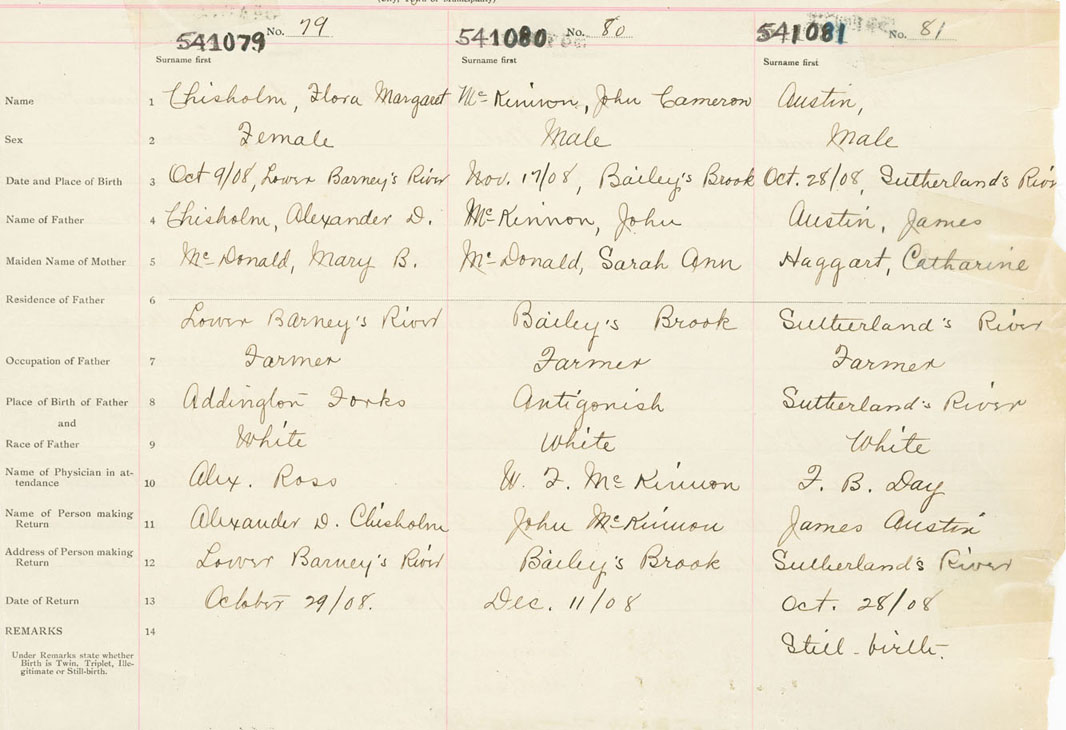 (City, Town or Municipality)
541079 No. 79 541080 No. 80 541081 No. 81
Surname first Surname first Surname first
Name 1 Chisholm, Flora Margaret McKinnon, John Cameron Austin,
Sex 2 Female Male Male
Date and Place of Birth 3 Oct 9/08, Lower Barney's River Nov. 17/08, Bailey's Brook Oct. 28/08, Sutherland's River
Name of Father 4 Chisholm, Alexander D. McKinnon, John Austin, James
Maiden Name of Mother 5 McDonald, Mary B. McDonald, Sarah Ann Haggart, Catharine
Residence of Father 6
Lower Barney's River Bailey's Brook Sutherland's River
Occupation of Father 7 Farmer Farmer Farmer
Place of Birth of Father 8 Addington Forks Antigonish Sutherland's River
and
Race of Father 9 White White White
Name of Physician in at-
tendance 10 Alex. Ross W. F. McKinnon F. B. Day
Name of Person making
Return 11 Alexander D. Chisholm John McKinnon James Austin
Address of Person making
Return 12 Lower Barney's River Bailey's Brook Sutherland's River
Date of Return 13 October 29/08. Dec. 11/08 Oct. 28/08
REMARKS 14 Still-birth.
Under Remarks state whether
Birth is Twin, Triplet, Ille-
gitimate or Still-birth.